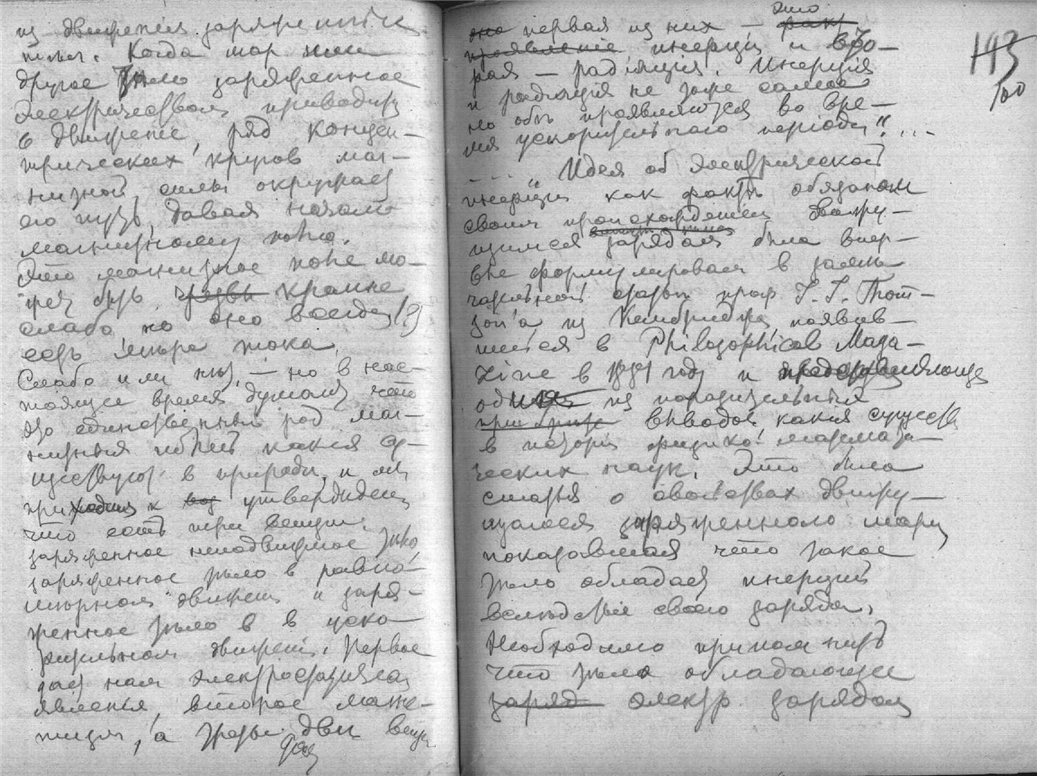 из движения заряженныхъ
телъ. Когда шар или
другое тѣло заряженное
электричеством приводит
в движение, ряд концен-
трических кругов маг-
нитной силы окружает
его путь, давая начало
магнитному полю.
Это магнитное поле мо-
жет быть крайне
слабо но оно всегда (?)
есть мѣра тока.
Слабо или нѣт — но в нас-
тоящее время думают что
это единственный род маг-
нитных полей какия су-
ществуют в природе, и мы
приходим к утвержденію
что есть три вещи:
заряженное неподвижное тѣло
заряженное тѣло в равно-
мѣрном движеніи и заря-
женное тѣло в в уско-
рительном движеніи. Первое
дает нам электростатическія
явленья, второе магне-
тизм, а третье две вещи
дает
это
первая из них —
инерція и вто-
рая — радіяція. Инерція
и радіяція не тоже самое
но обѣ проявляются во вре-
мя ускорительнаго періода"...
.... "Идея об электрической
инерціи как фактѣ обязаном
своим происхожденіем движу-
щимся зарядам была впер-
вые формулирована в замѣ-
чательной статьѣ проф J. J. Том-
зон'а из Кембриджа появив-
шейся в Philosophical Maga-
zine в 1881 году и представляюще
один из поразительных
выводов какія существ
в исторіи физико-математи-
ческих наук. Это была
статья о свойствах движу-
щагося заряженнаго шара
показавшая что такое
тѣло обладает инерціей
вслѣдствіе своего заряда.
Необходимо припомнить
что тѣло обладающее
заряд электр. зарядом
193
100